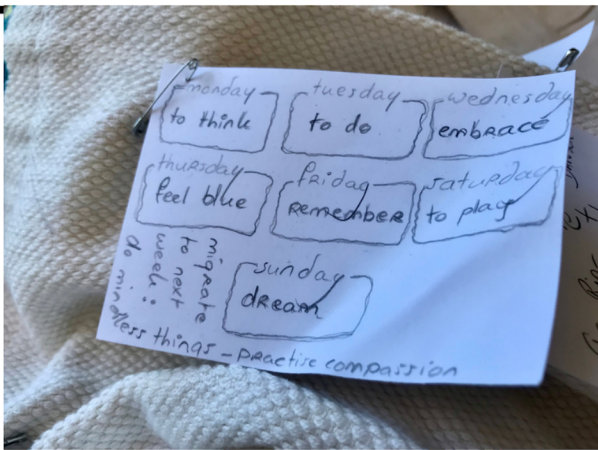 monday
to think
tuesday
to do
wednesday
embrace
thursday
feel blue
friday
remember
saturday
to play
sunday
dream
migrate
to next
week:
do mindless things - practise compassion